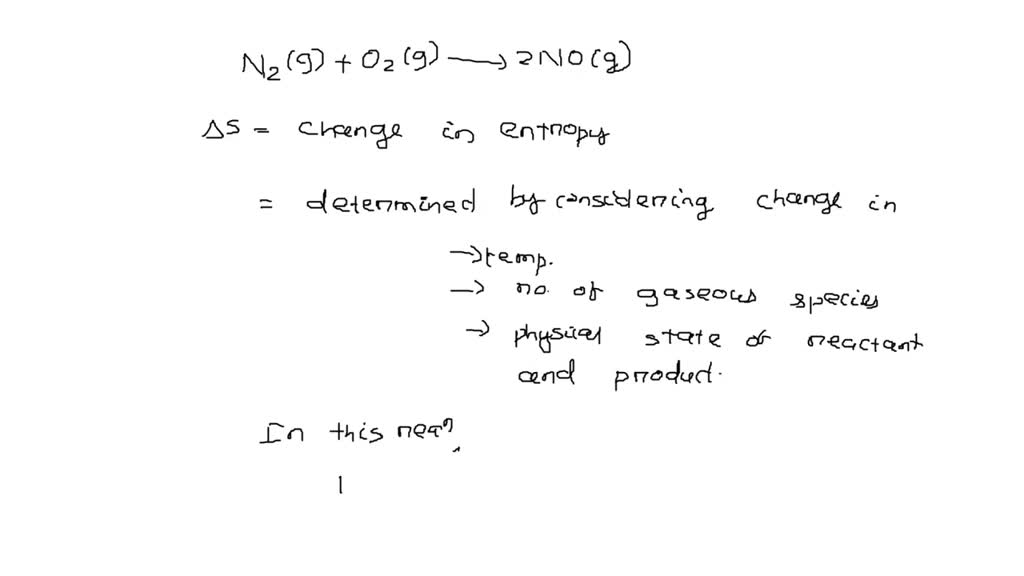 N₂(g) + O₂(g) ⟶ 2NO(g)
ΔS = change in entropy
= determined by considering change in
→ temp.
→ no. of gaseous species
→ physical state of reactant
and product.
In this reaⁿ,
1